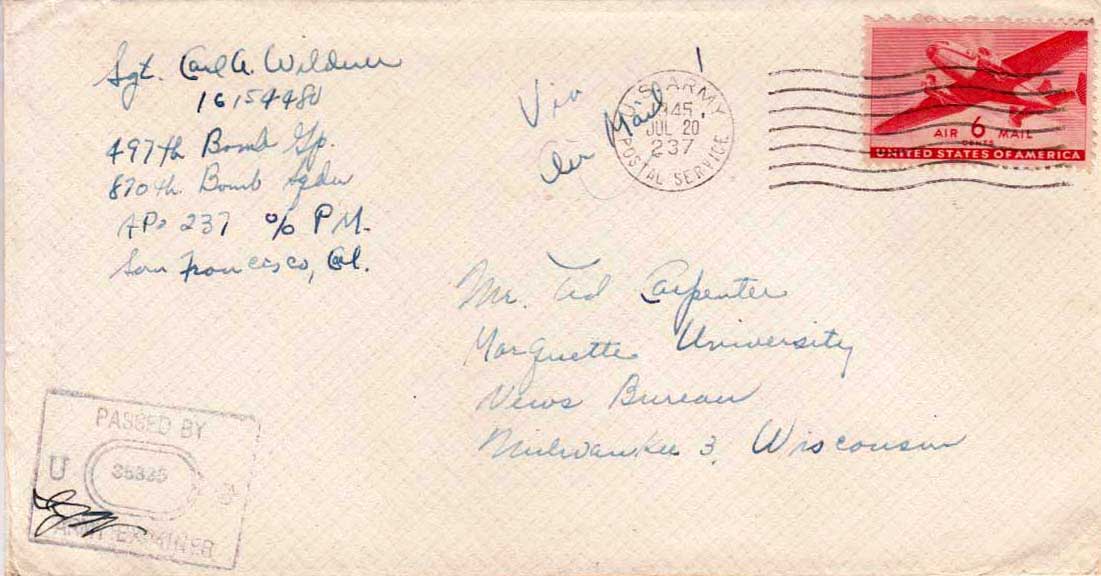 Sgt. Carl A. Wildner
16154480
497th Bomb Gp.
870th Bomb Sqdn
APO 237 c/o P.M.
San Francisco, Cal.
Via
Air Mail
1
U.S. ARMY
1945
JUL 20
237
POSTAL SERVICE
AIR 6 MAIL
CENTS
UNITED STATES OF AMERICA
Mr. Ted Carpenter
Marquette University
News Bureau
Milwaukee 3, Wisconsin
PASSED BY
U
ARMY EXAMINER